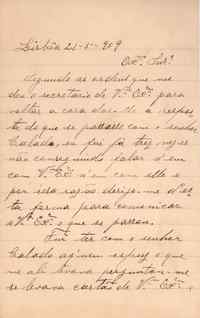 Lisbôa 21-5-909
Exmo Snr.
Segundo as ordens que me
deu o secretario de Vª Exª para
voltar a casa do a respei-
to do que se passasse com o senhor
Calado, eu fui já trez vezes
não conseguindo falar nem
com Vª Exª nem com elle e
por esta razão dirijo-me d'es-
ta forma para comunicar
a Vª Exª o que se passou.
Fui ter com o senhor
Calado aquem expuz o que
me ali levava perguntou-me
se levava carta de Vª Exª,